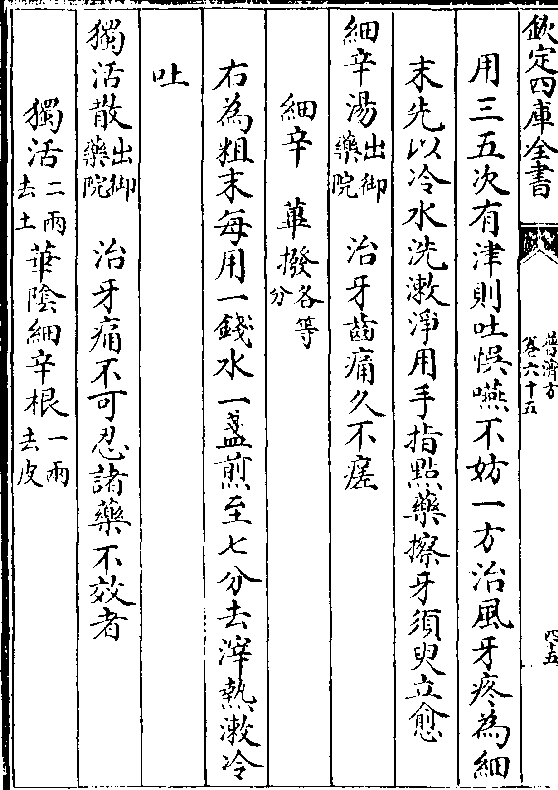 欽定四庫全書
普濟方
卷六十五
四十五
用三五次有津則吐悞嚥不妨一方治風牙疼為細
末先以冷水洗漱淨用手指點藥擦牙須臾立愈
細辛湯出御藥院 治牙齒痛久不瘥
細辛 蓽撥各等分
右為粗末每用一錢水一盞煎至七分去滓熱漱冷
吐
獨活散出御藥院 治牙痛不可忍諸藥不效者
獨活二兩去土華陰細辛根一兩去皮